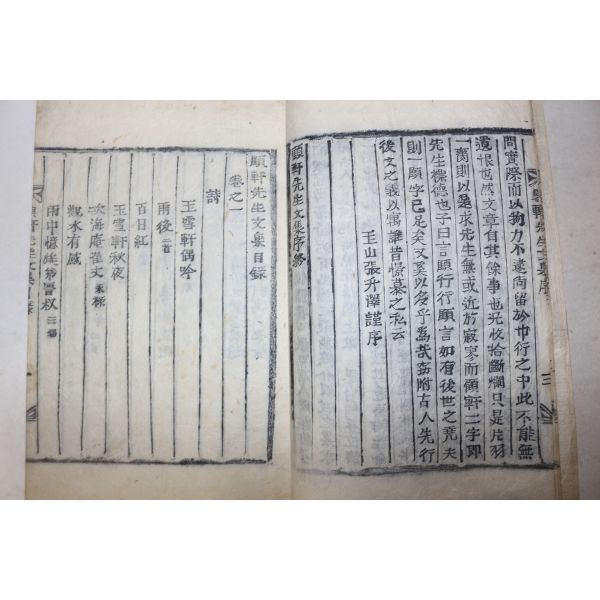 顧軒先生文集序
問實際而以物力不逮尙留於巾衍之中此不能無
遺恨也然文章自其餘事也况收拾斷爛只是片羽
裔則以是求先生無或近於寂寥而顧軒二字即
先生㯹德也子曰言顧行行顧言如有後世之堯夫
則一顧字已足矣又奚以多乎爲哉窃附古人先行
後文之義以寓誰昔憬慕之私云
玉山張升澤謹序
顧軒先生文集序終
顧軒先生文集目錄
卷之一
詩
玉雪軒偶吟
雨後二首
百日紅
玉雪軒秋夜
次海庵崔丈
觀水有感
雨中憶族弟晋叔三首
顧軒先生文集目錄